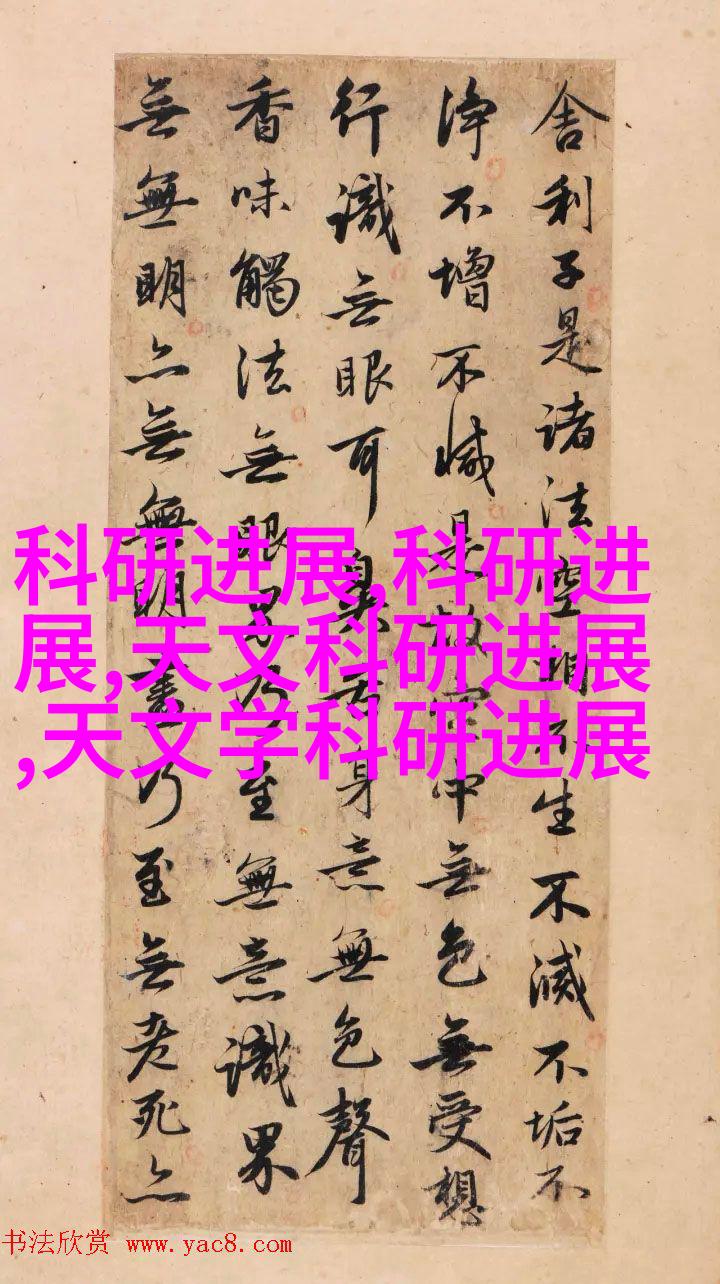 舍利子是诸法空相不生不滅不垢不
淨不增不減是故空中無色無受想
行識无眼耳鼻舌身意無色聲
香味觸法無眼界乃至無意識界
無無明亦無無明盡乃至無老死亦
科研进展,科研进
展,天文科研进展
,天文学科研进展
书法欣赏 www.yac8.com